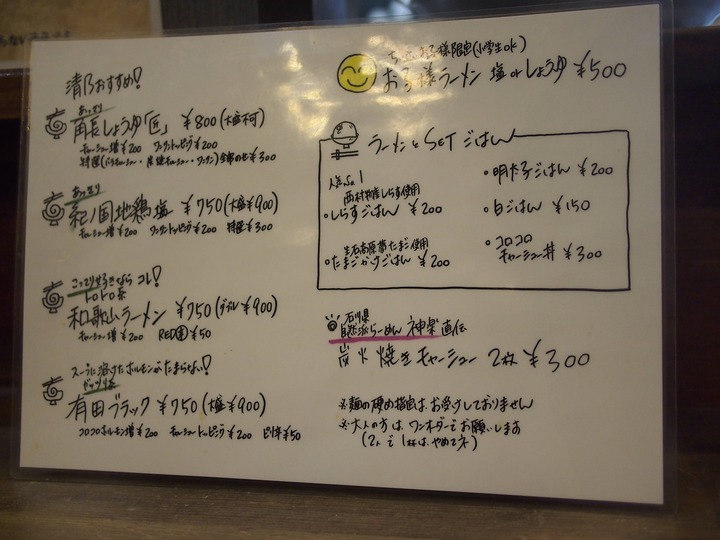 清乃おすすめ!
あっさり
角長しょうゆ「匠」 ¥800(大盛不可)
チャーシュー増¥200 ワンタントッピング¥200
特選(バラチャーシュー・炭焼チャーシュー・ワンタン)全部のせ¥300
あっさり
紀ノ国地鶏塩 ¥750(大盛¥900)
チャーシュー増¥200 ワンタントッピング¥200 特選¥300
こってり好きならコレ!
トロトロ系
和歌山ラーメン ¥750(ダブル¥900)
チャーシュー増¥200 RED ¥50
スープに溶けたホルモンがたまらない!
ドッツリ系
有田ブラック ¥750(大盛¥900)
コロコロホルモン増¥200 チャーシュートッピング¥200 ピリ辛¥50
お子様限定(小学生ok)
お子様ラーメン 塩orしょうゆ ¥500
ラーメンとSETごはん
人気No.1
しらす使用
・しらすごはん ¥200
生石高原の卵たまご使用
・たまごかけごはん ¥200
・明太子ごはん ¥200
・白ごはん ¥150
・コロコロ
チャーシュー丼 ¥300
石川県
自然派らーめん 神楽 直伝
炭火焼きチャーシュー 2枚 ¥300
※麺の硬め指定はお受けしておりません
※大人の方はワンオーダーでお願いします
(2人で1杯はやめてネ)